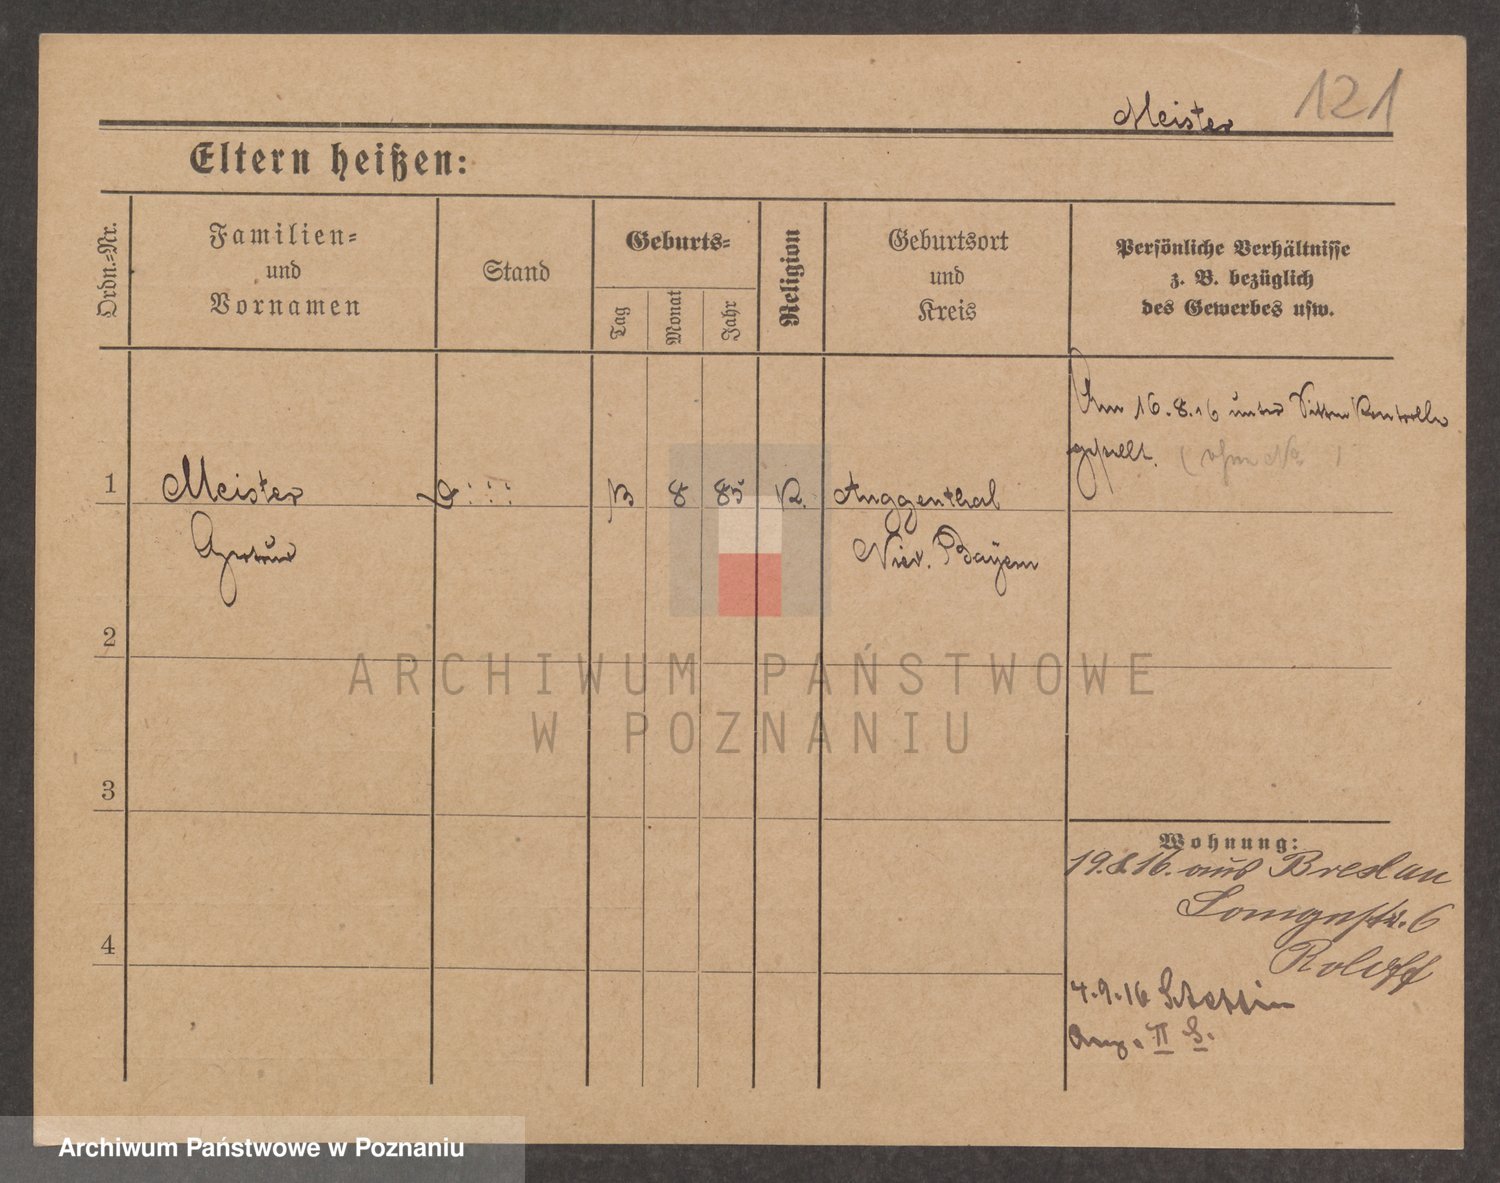 121
Meister
Eltern heißen:
Ordn.-Nr.
Familien-
und
Vornamen
Stand
Geburts-
Tag
Monat
Jahr
Religion
Geburtsort
und
Kreis
Persönliche Verhältnisse
z. B. bezüglich
des Gewerbes usw.
Am 16.8.16 unter Sitten Kontrolle
gestellt.
1
Meister
8
85
K.
Anggenthal
Nied. Bayern
2
3
4
Wohnung:
19.8.16. aus Breslau
6
Roloff
4.9.16 Stettin
II S.
ARCHIWUM PAŃSTWOWE
W POZNANIU
Archiwum Państwowe w Poznaniu